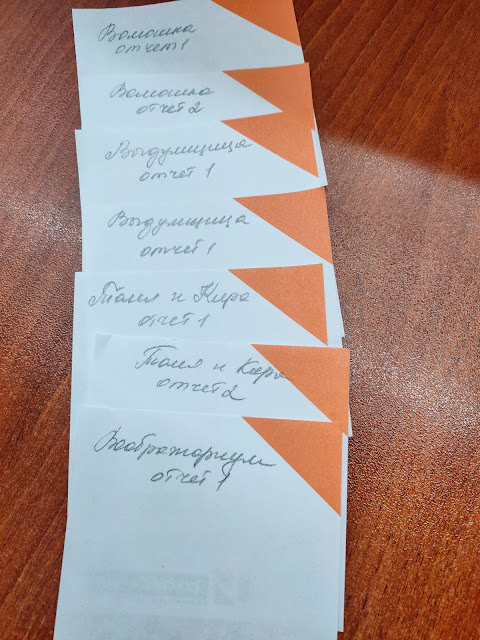 Вомошка
отчет 1
Вомошка
отчет 2
Выдумщица
отчет 1
Выдумщица
отчет 1
Таня и Кира
отчет 1
Таня и Кира
отчет 2
Воображариум
отчет 1